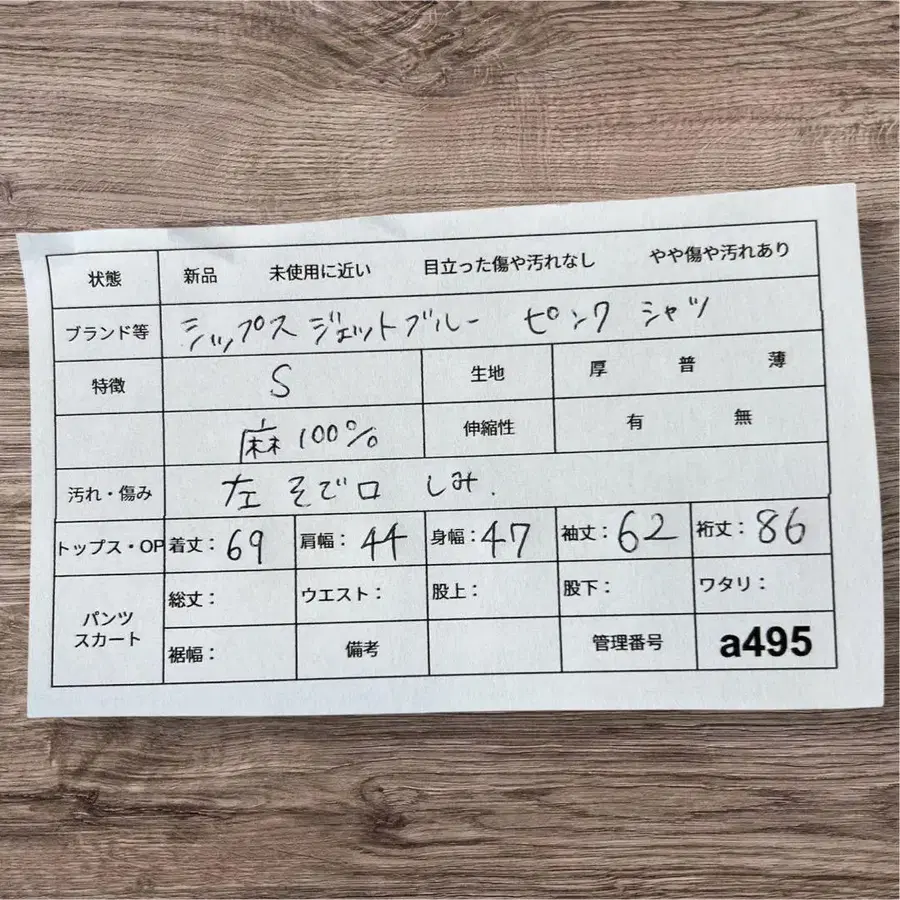 状態 新品 未使用に近い 目立った傷や汚れなし やや傷や汚れあり
ブランド等 シップス ジェットブルー ピンク シャツ
特徴 S 生地 厚 普 薄
麻100% 伸縮性 有 無
汚れ・傷み 左 そで口 しみ.
トップス・OP 着丈：69 肩幅：44 身幅：47 袖丈：62 裄丈：86
パンツ スカート 総丈： ウエスト： 股上： 股下： ワタリ：
裾幅： 備考 管理番号 a495